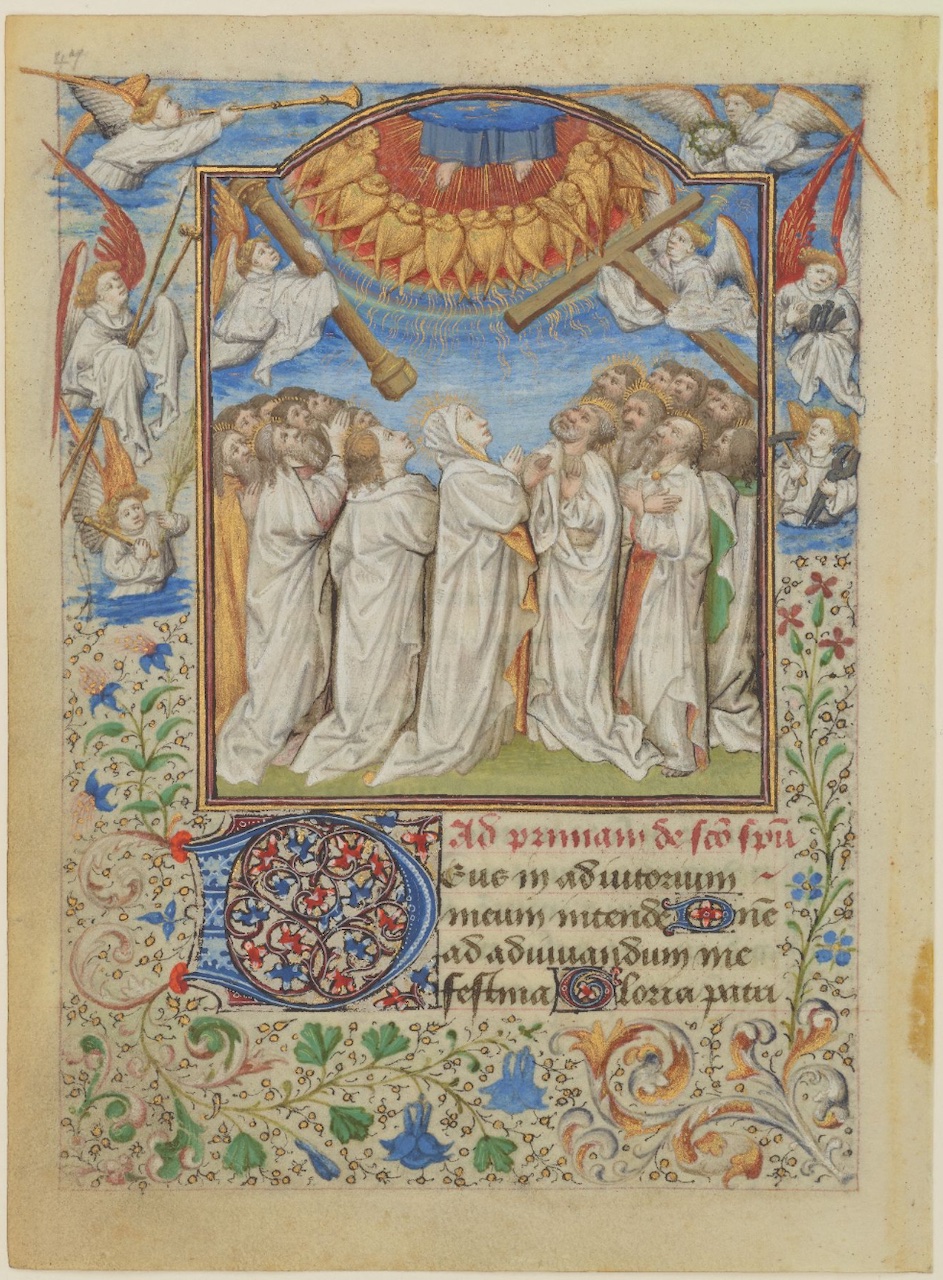 47
Ad primam de sco spu
Deus in adiutorium
meum intende Dne
ad adiuuandum me
festina Gloria patri